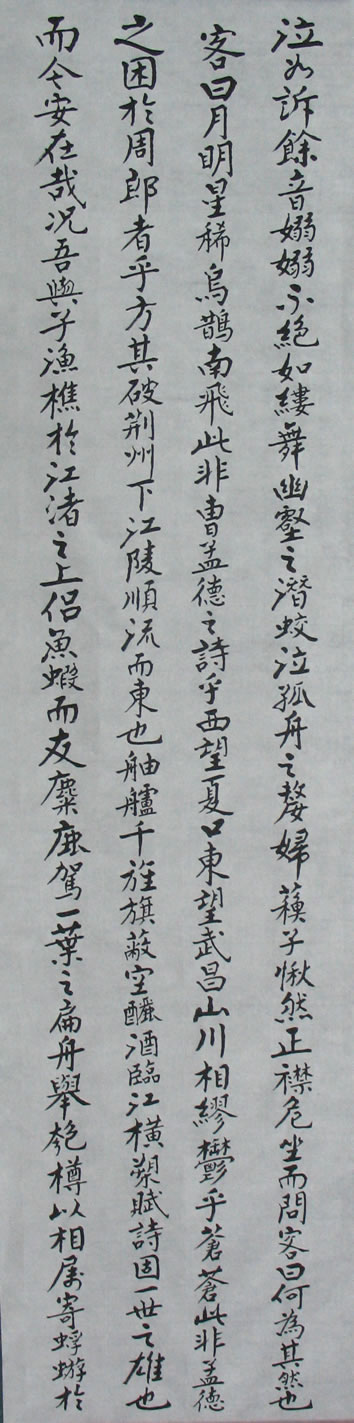 泣如訴餘音嫋嫋不絕如縷舞幽壑之潛蛟泣孤舟之嫠婦蘓子愀然正襟危坐而問客曰何為其然也
客曰月明星稀烏鵲南飛此非曹孟德之詩乎西望夏口東望武昌山川相繆鬱乎蒼蒼此非孟德
之困於周郎者乎方其破荆州下江陵順流而東也舳艫千旌旗蔽空釃酒臨江橫槊賦詩固一世之雄也
而今安在哉况吾與子漁樵於江渚之上侶魚蝦而友麋鹿駕一葉之扁舟舉匏樽以相属寄蜉蝣於